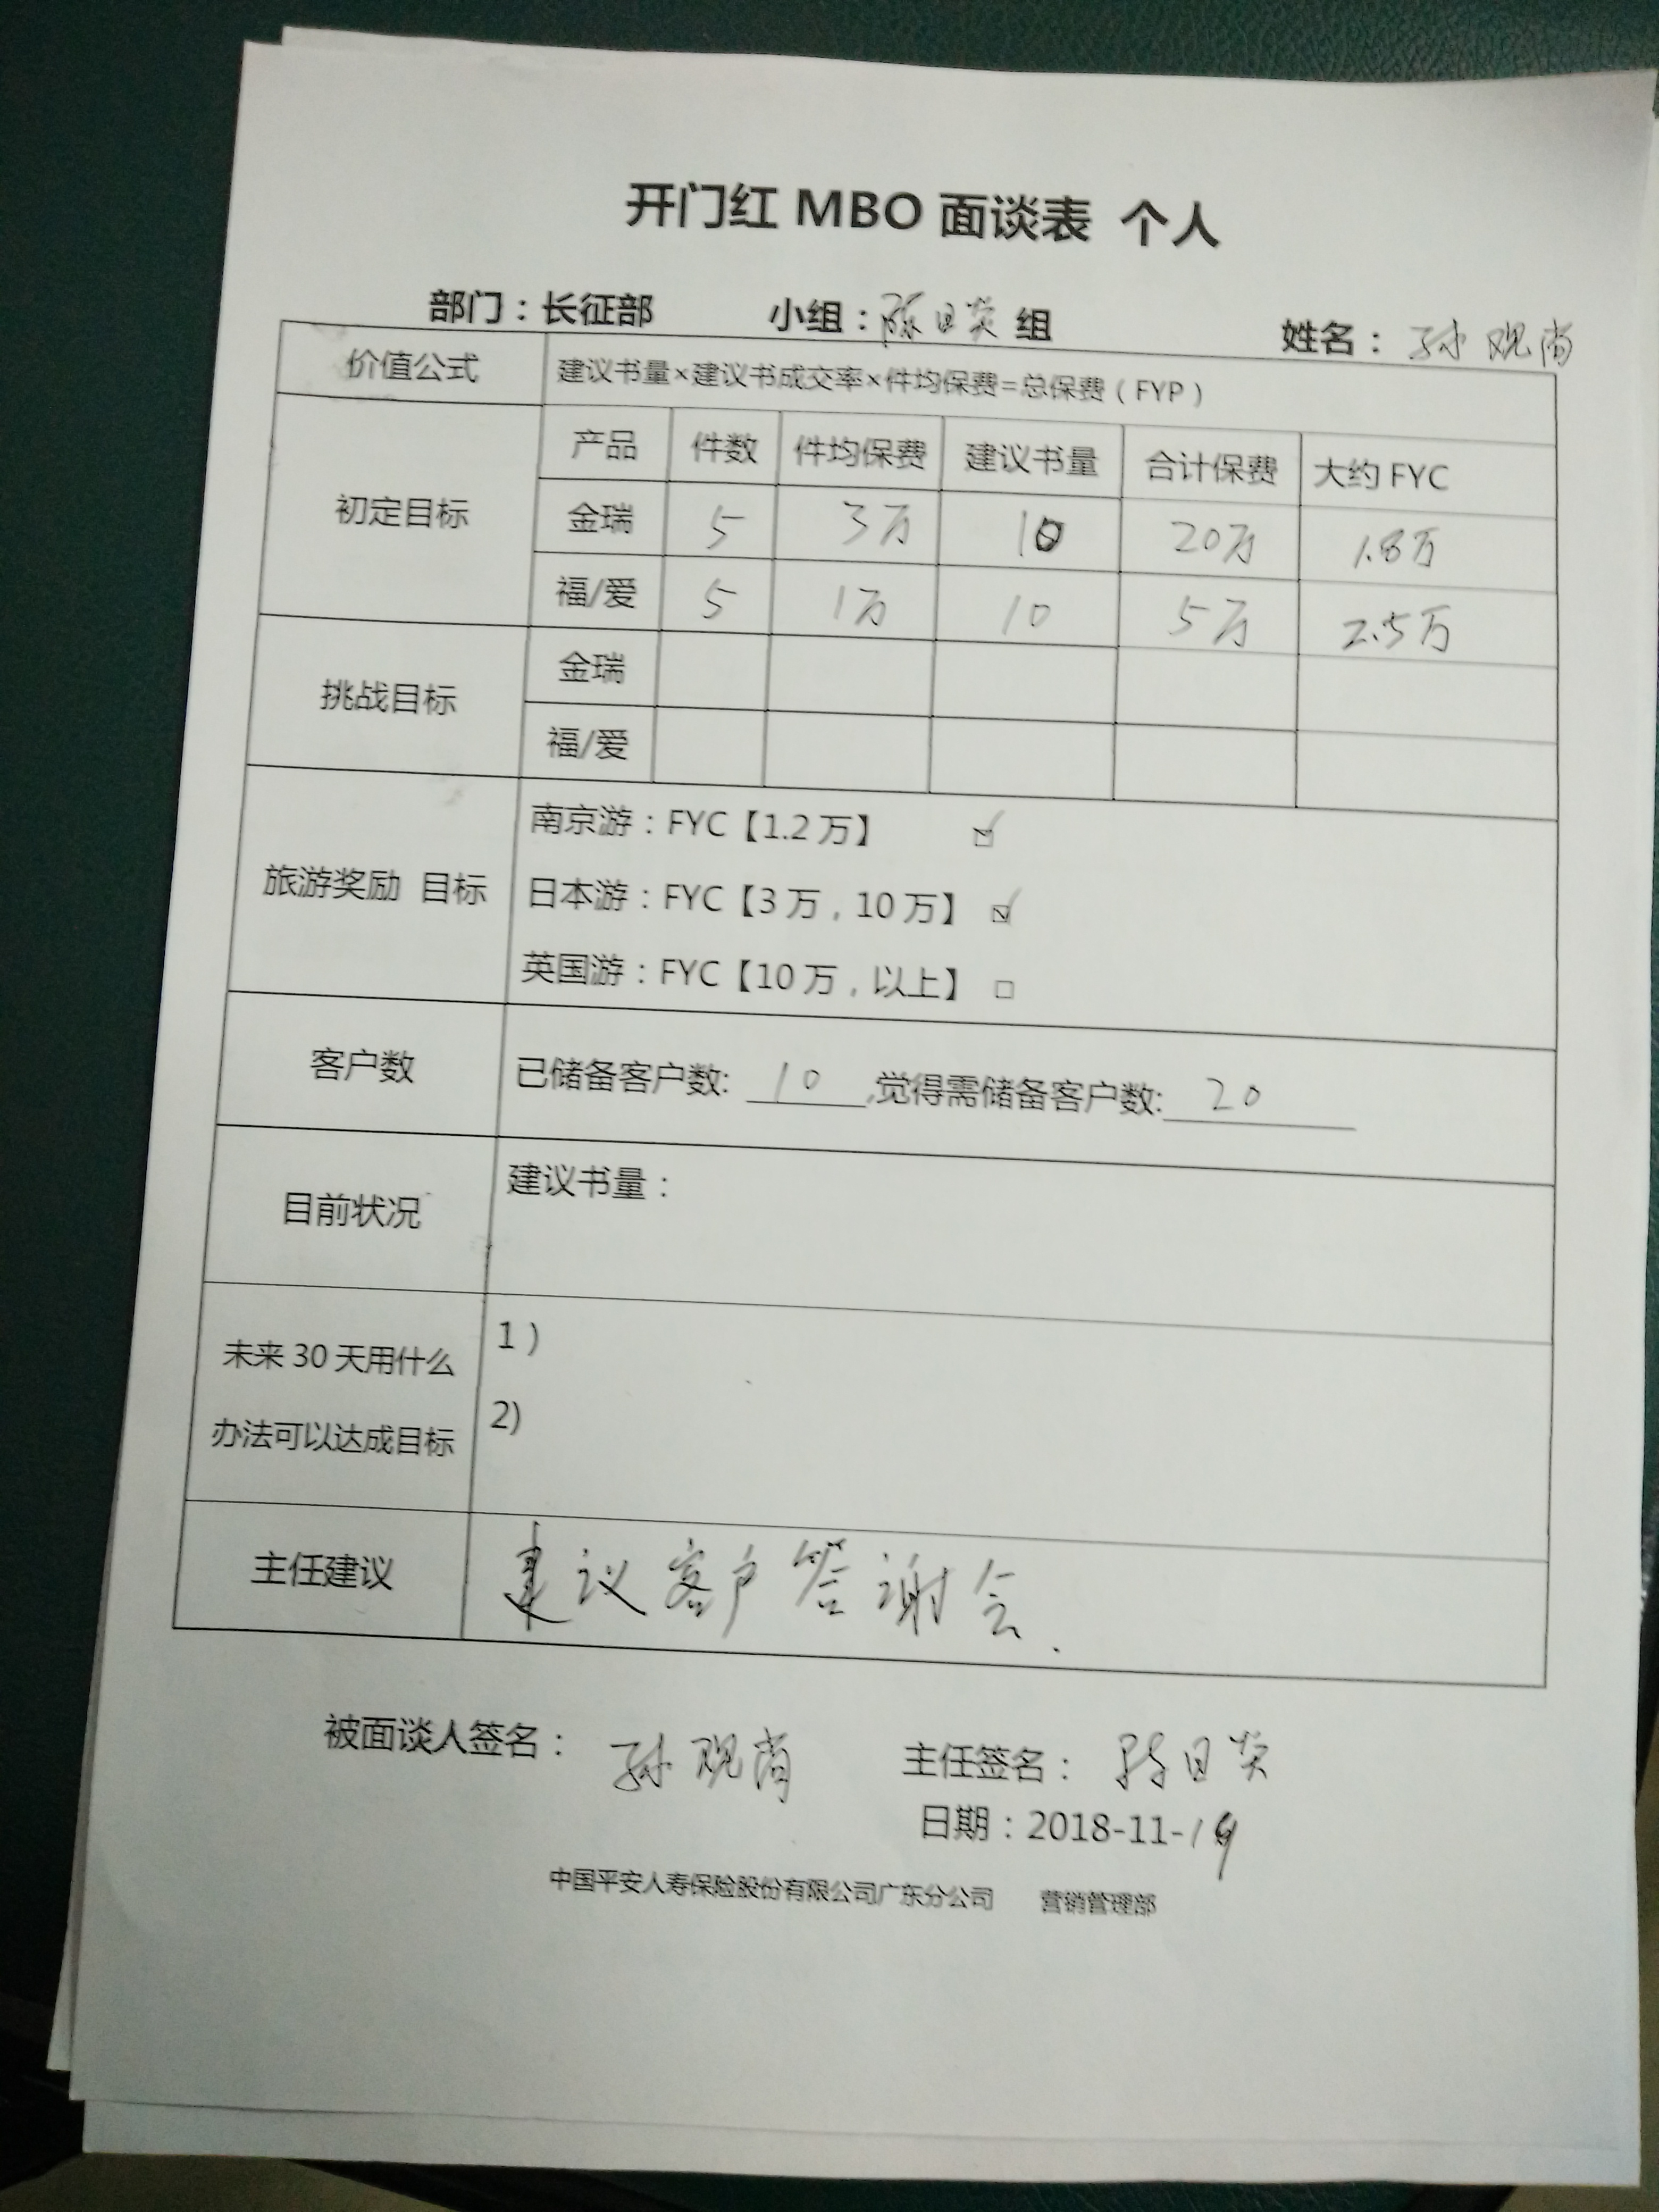 开门红 MBO 面谈表 个人
部门：长征部 小组：陈日炎 组 姓名：孙观尚
价值公式 建议书量×建议书成交率×件均保费=总保费（FYP）
初定目标 产品 件数 件均保费 建议书量 合计保费 大约 FYC
金瑞 5 3万 10 20万 1.8万
福/爱 5 1万 10 5万 2.5万
挑战目标 金瑞
福/爱
旅游奖励 目标 南京游：FYC【1.2 万】 ☑
日本游：FYC【3 万，10 万】 ☑
英国游：FYC【10 万，以上】 □
客户数 已储备客户数: 10 ,觉得需储备客户数: 20
目前状况 建议书量：
未来 30 天用什么办法可以达成目标 1）
2)
主任建议 建议客户答谢会.
被面谈人签名： 孙观尚 主任签名： 陈日炎
日期：2018-11-19
中国平安人寿保险股份有限公司广东分公司 营销管理部